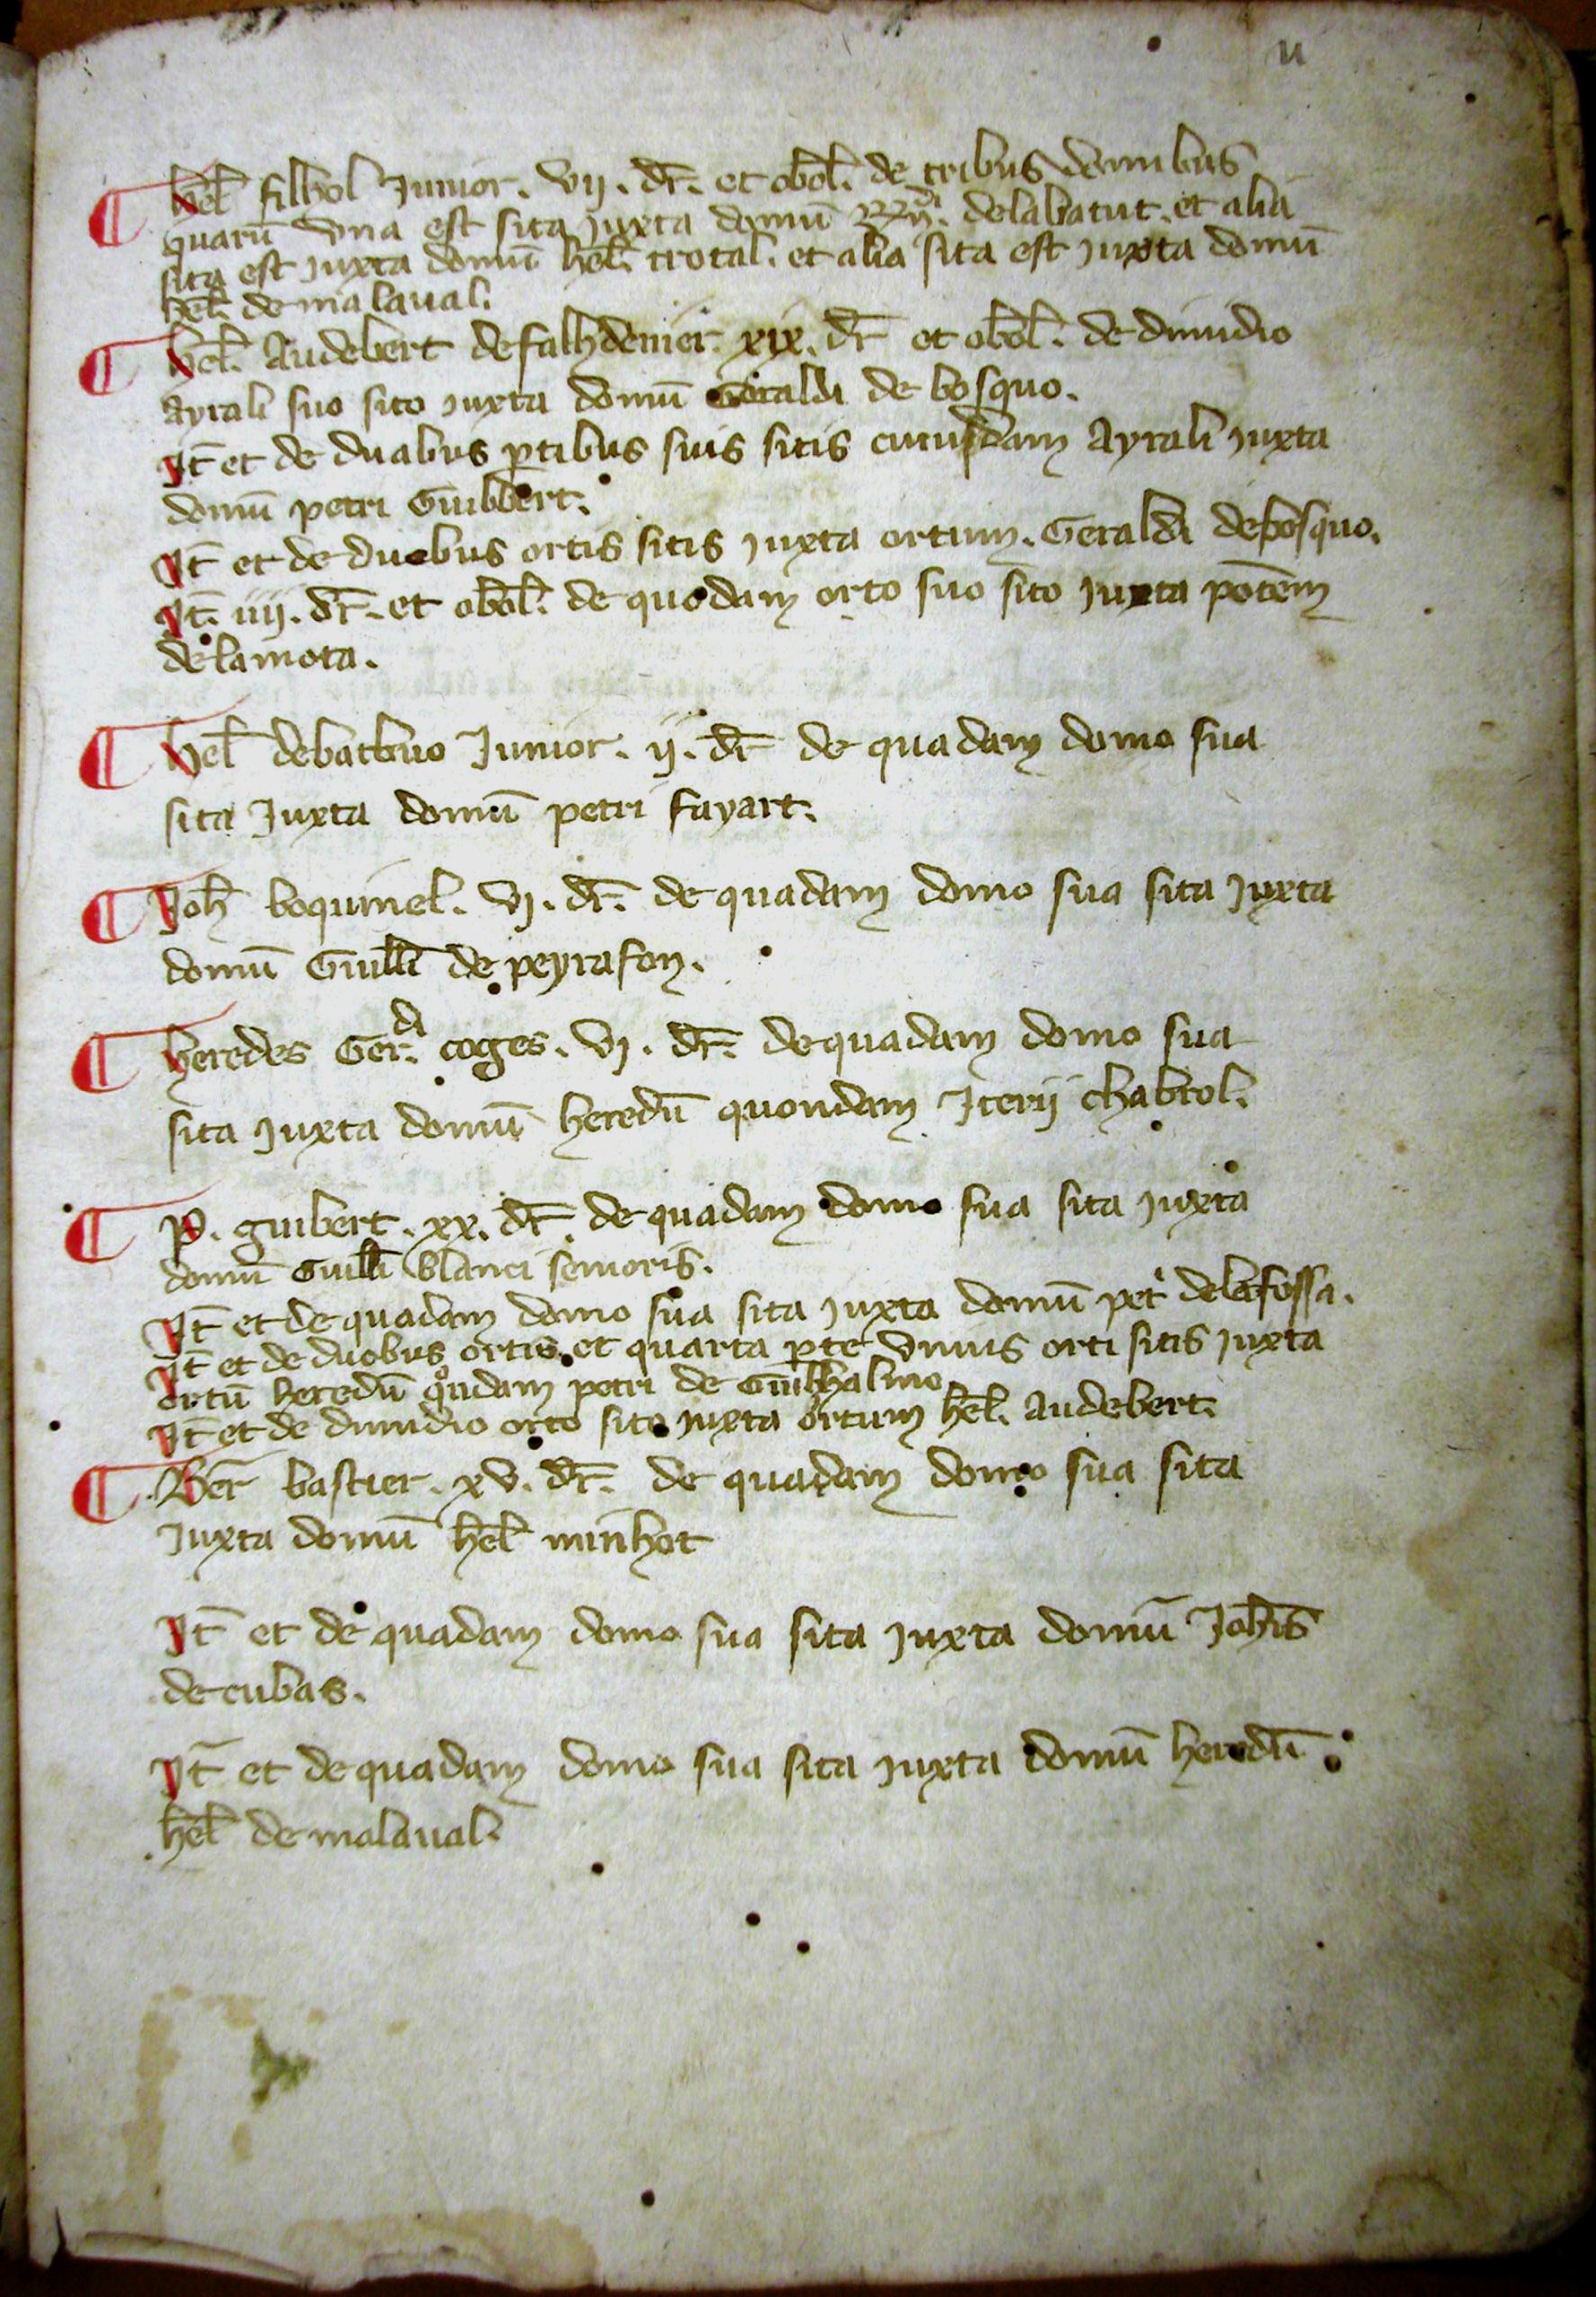 ii
¶ hel̄ filhol Junior. vij. dr̄. et obol̄. de tribus domibus
quarū vna est sita juxta domū delabatut. et alia
sita est juxta domū hel̄. trotal. et alia sita est juxta domū
hel̄. de malaual.
¶ hel̄. Audebert defalhdenier. xix. dr̄ et obol̄. de dimidio
ayrali suo sito juxta domū Geraldi de bosquo.
Jt̄ et de duabus ꝑtibus suis sitis cuiusdam ayrali juxta
domū petri Guibbert.
Jt̄ et de duobus ortis sitis juxta ortum. Geraldi debosquo.
Jt̄. iiij. dr̄. et obol̄. de quodam orto suo sito juxta pōtem
delamota.
¶ hel̄ debatbuo Junior. ij. dr̄ de quadam domo sua
sita Juxta domū petri fayart.
¶ Joh̄ boquinel. vj. dr̄. de quadam domo sua sita juxta
domū Guill̄i de peyrafon.
¶ heredes Ger.di coges. vj. dr̄. dequadam domo sua
sita juxta domū heredū quondam Jterij chabrol.
¶ p. guibert. xx. dr̄. de quadam domo sua sita juxta
domū Guill̄i blanci senioris.
Jt̄ et de quadam domo sua sita juxta domū petⁱ delafossa.
Jt̄ et de duobus ortis. et quarta ꝑte vnius orti sitis juxta
ortū heredū qᵒndam petri de Guilhalmo
Jt̄ et de dimidio orto sito juxta ortum hel̄. audebert.
¶ Ber̄ bastier. xv. dr̄. de quadam domo sua sita
juxta domū hel̄ minhot
Jt̄ et de quadam domo sua sita juxta domū Joh̄is
decubas.
Jt̄ et dequadam domo sua sita juxta domū heredū
hel̄ de malaual.